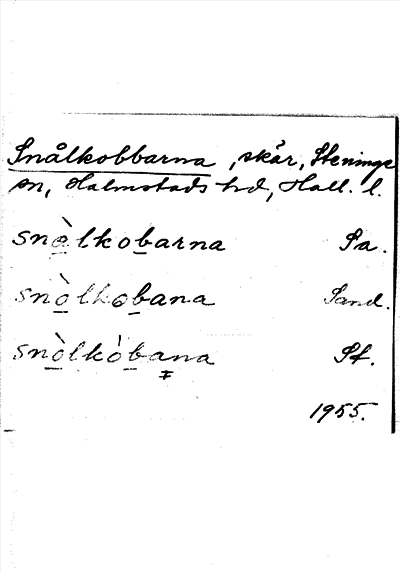 Snålkobbarna, skär, Steninge
sn, Halmstads hd, Hall. l.
snò̲lkob̲arna Pa.
snò̲lkob̲ana Sand.
snò̲lkòb̲ana Pf.
1955.